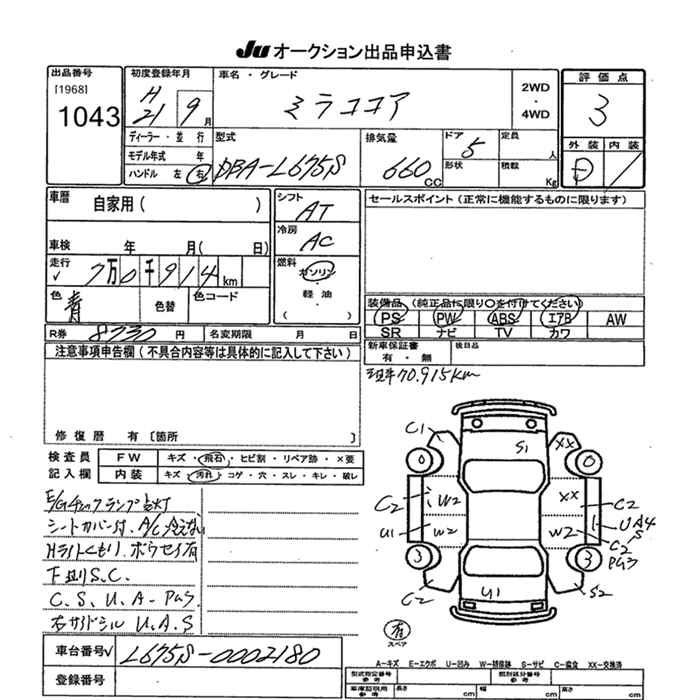 Ju オークション出品申込書
出品番号
[1968]
1043
初度登録年月
H
21 9 月
車名・グレード
ミラココア
2WD
・
4WD
評価点
3
外装 内装
ディーラー・並行
モデル年式 年
ハンドル 左 右
型式
DBA-L675S
排気量
660 CC
ドア 5
形状
定員 人
積載 Kg
車歴
自家用( )
シフト
AT
セールスポイント(正常に機能するものに限ります)
車検 年 月( 日)
冷房
AC
走行
√ 7万0千914km
燃料
ガソリン
・
軽油
( )
色
青
色替
色コード
装備品(純正品に限り○を付けてください)
PS PW ABS エアB AW
SR ナビ TV カワ
R券 8730 円 名変期限 月 日
新車保証書
有・無
後日品
注意事項申告欄(不具合内容等は具体的に記入して下さい)
現車70.915km
修復歴 有〔箇所 〕
検査員
記入欄
FW キズ・飛石・ヒビ割・リペア跡・×要
内装 キズ・汚れ・コゲ・穴・スレ・キレ・破レ
E/Gチェックランプ点灯
シートカバー付.A/C冷えない
Hライトくもり.ボウセイ有
下廻りS.C.
C.S.U.A-Pあり.
右サイドシルU.A.S
C1
S1
XX
0
0
C2
W2
XX
C2
U1
W2
W2
1
UA4
S
C2
Pあ3
3
3
C2
U1
S2
有
スペア
A-キズ E-エクボ U-凹み W-補修跡 S-サビ C-腐食 XX-交換済
車台番号√ L675S-0002180
登録番号
型式指定番号
参考
類別区分番号
参考
車庫証明用
参考
長さ cm
幅 cm
高さ cm